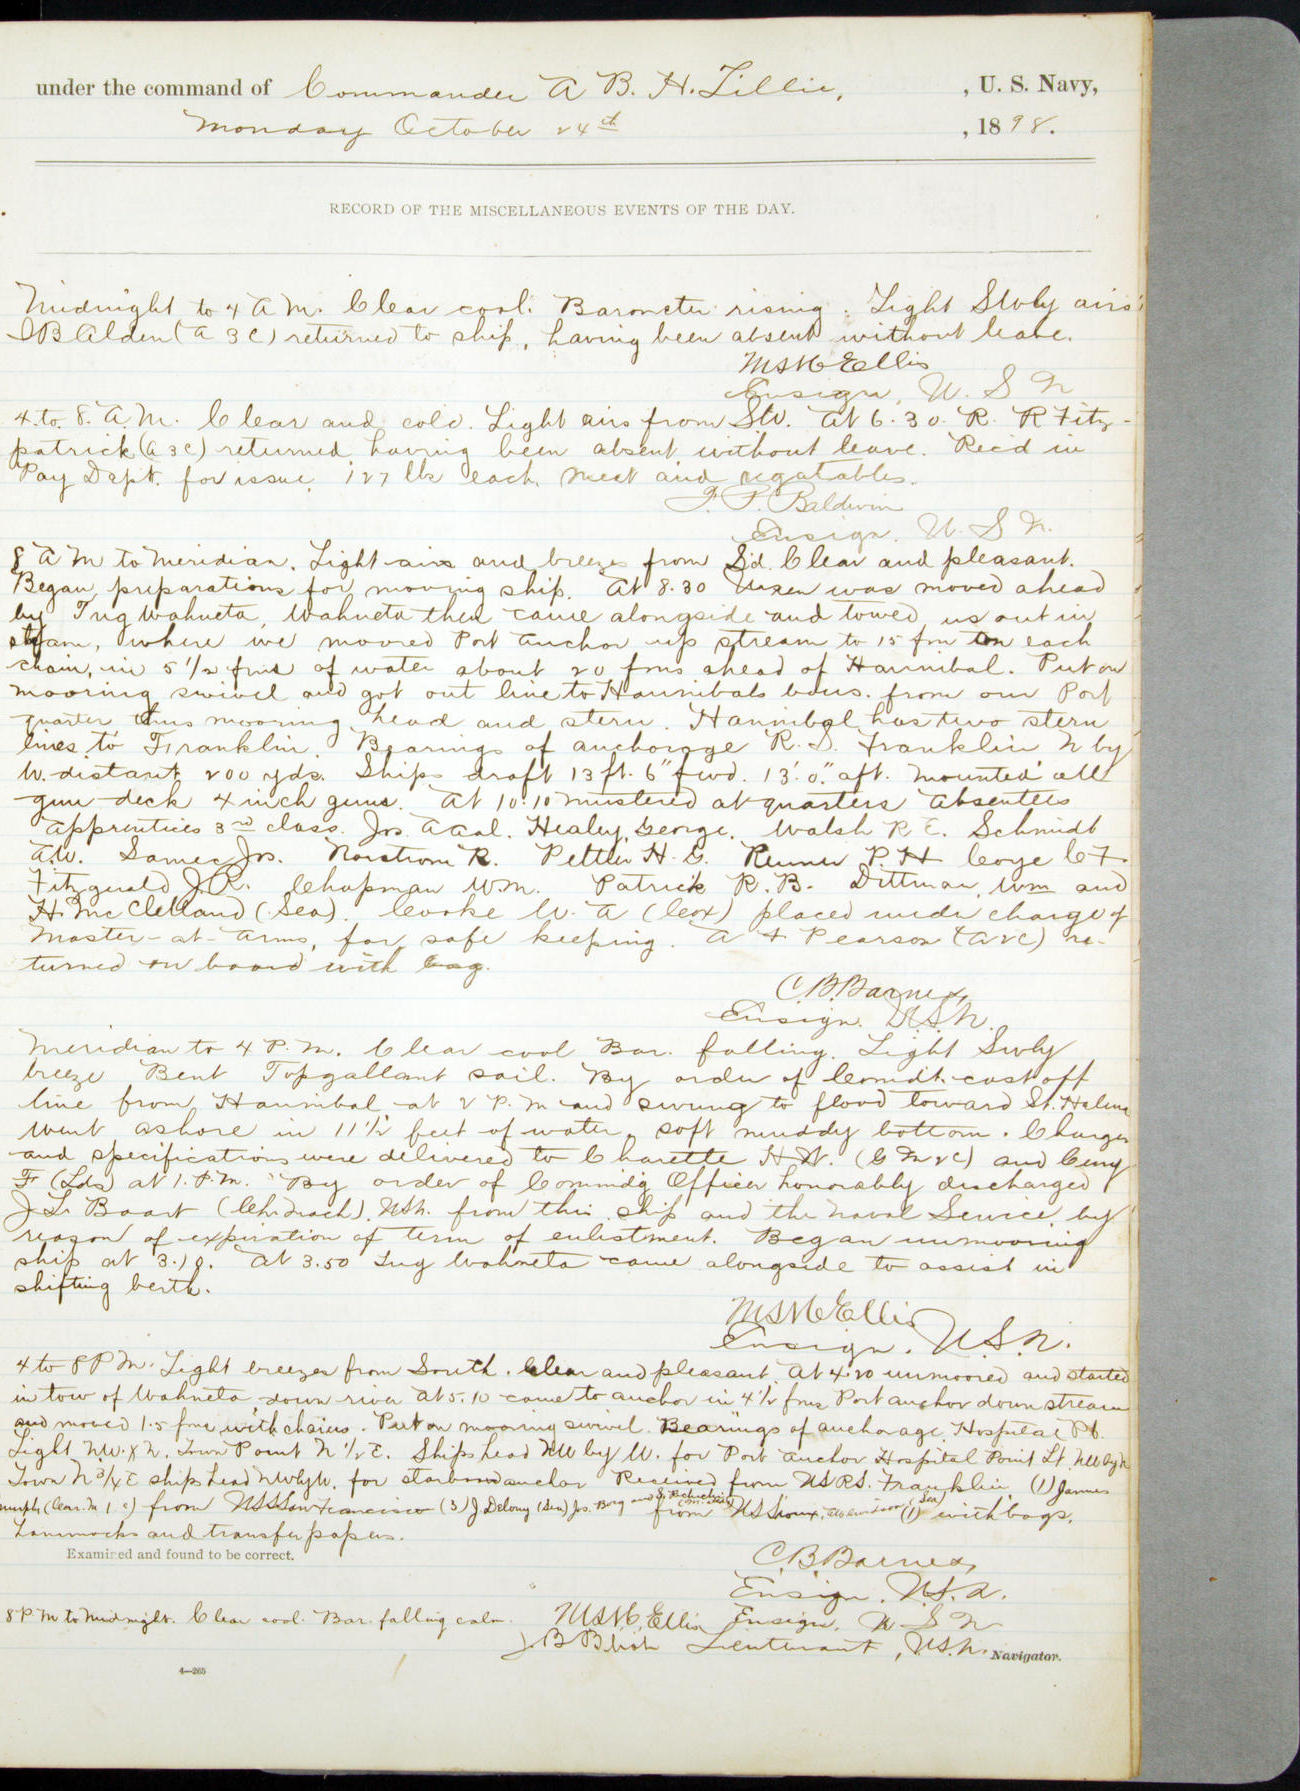 under the command of Commander A B. H. Lillie, , U. S. Navy,
Monday October 24th , 1898.
RECORD OF THE MISCELLANEOUS EVENTS OF THE DAY.
Midnight to 4 A M. Clear cool. Barometer rising. Light SWly airs
B Alden (A 3 C) returned to ship, having been absent without leave.
Ellis
Ensign, U. S N
4 to 8. A. M. Clear and cold. Light airs from SW. At 6.30. R. R Fitz-
patrick (A 3 C) returned having been absent without leave. Rec'd in
Pay Dept. for issue, 127 lbs each, meat and vegatables.
F. P. Baldwin
Ensign, U. S N.
8 A M to Meridian. Light airs and breezes from S'd. Clear and pleasant.
Began preparations for moving ship. At 8.30 was moved ahead
by Tug Wahneta, Wahneta then came alongside and towed us out in
stream, where we moored Port anchor up stream to 15 fm on each
chain, in 5 1/2 fms of water about 20 fms ahead of Hannibal. Put on
mooring swivel and got out line to Hannibals bows. from our Port
quarter thus mooring head and stern. Hannibal has two stern
lines to Franklin. Bearings of anchorage R. S. Franklin N by
W. distant 200 yds. Ships draft 13 ft. 6" fwd. 13'.0." aft. Mounted all
gun deck 4 inch guns. At 10.10 mustered at quarters Absentees
Apprentices 3rd class. Jos. Healey, George. Walsh R E. Schmidt
A.W. Samec Jos. Norstrom R. Pettler H. G. P. H Coye C F.
Fitzgerald J. R. Chapman W.M. Patrick R. B. Dittman, Wm and
H. McClelland (Sea). Cooke W. A (Cox) placed under charge of
Master-at-Arms, for safe keeping. A F Pearson (A 2 C) re-
turned on board with bag.
C. B. Barnes,
Ensign. U.S.N.
Meridian to 4 P.M. Clear cool Bar. falling. Light Swly
breeze Bent Topgallant sail. By order of Comdt. cast off
line from Hannibal at 2 P.M and swung to flood toward St. Helena
Went ashore in 11 1/2 feet of water, soft muddy bottom. Charges
and specifications were delivered to Charette H W. (G M 2 C) and
F (Lds) at 1. P.M. By order of Commdg Officer honorably discharged
J L Baart (Ch. Mach). USN. from this ship and the Naval Service by
reason of expiration of term of enlistment. Began unmooring
ship at 3.10. At 3.50 Tug Wahneta came alongside to assist in
shifting berth.
Ellis
Ensign. U.S.N.
4 to 8 P M. Light breezes from South. Clear and pleasant. At 4.20 unmoored and started
in tow of Wahneta down river At 5.10 came to anchor in 4 1/2 fms Port anchor down stream
and moored 15 fms with chains. Put on mooring swivel. Bearings of anchorage Hospital Pt.
Light NW. X N. Town Point N 1/2 E. Ships head NW by W. for Port anchor Hospital Point Lt. NW by N
Town N 3/4 E ships head NW by W. for starboard anchor Received from USRS. Franklin, (1) James
from USS San Francisco (3) J Delony (Sea) Jos. Borg and from USS Sioux, (1) (Sea) with bags,
hammocks and transfer papers.
Examined and found to be correct.
C. B. Barnes,
Ensign. U.S.N.
8 P M to Midnight. Clear cool. Bar. falling calm. Ellis Ensign, U S N
J. B Blish Lieutenant, U.S.N. Navigator.
4—265